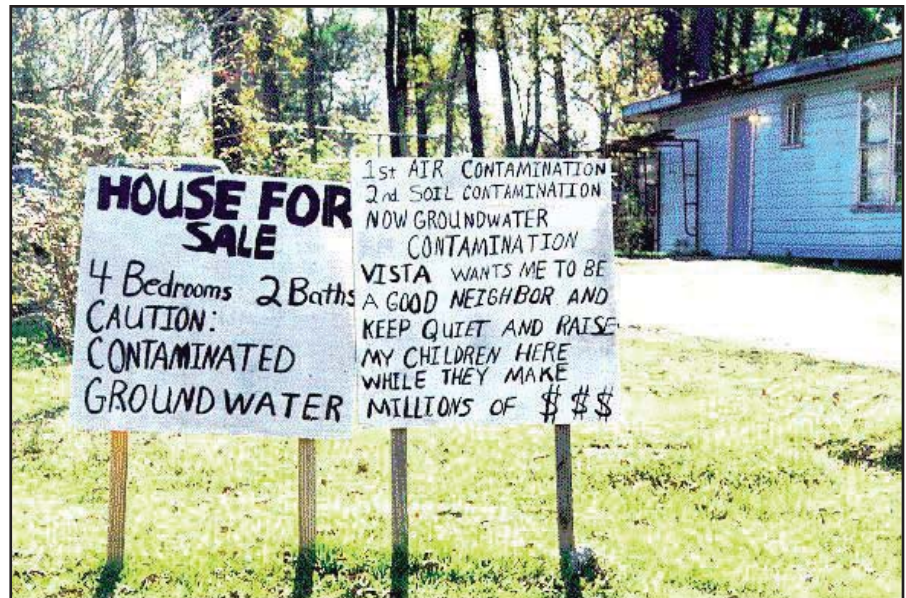 HOUSE FOR
SALE
4 Bedrooms 2 Baths
CAUTION:
CONTAMINATED
GROUNDWATER
1st AIR CONTAMINATION
2nd SOIL CONTAMINATION
NOW GROUNDWATER
CONTAMINATION
VISTA WANTS ME TO BE
A GOOD NEIGHBOR AND
KEEP QUIET AND RAISE
MY CHILDREN HERE
WHILE THEY MAKE
MILLIONS OF $ $ $